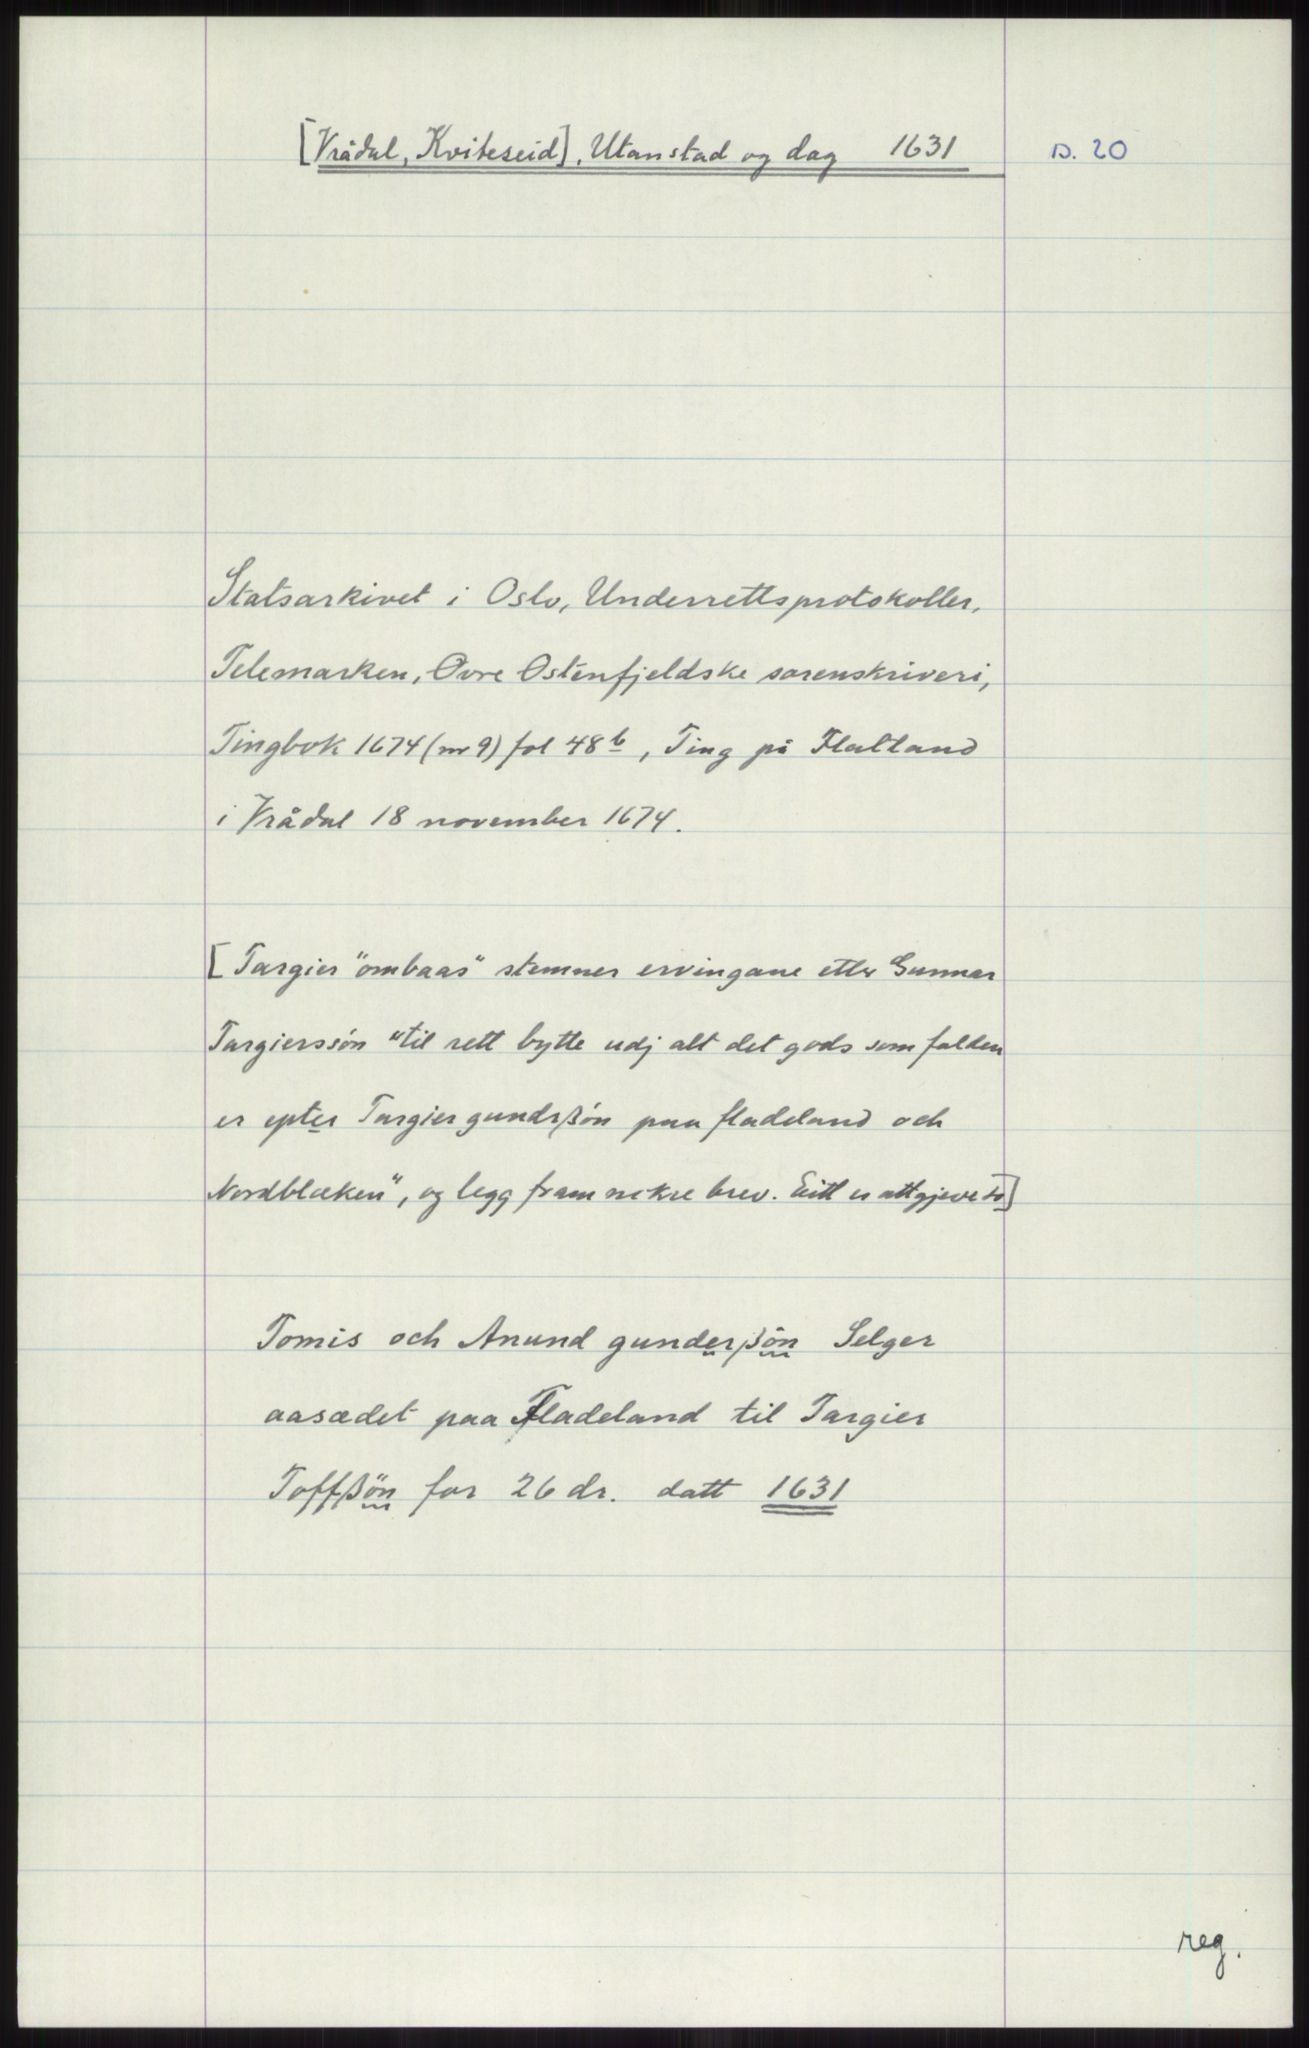 [Vrådal, Kviteseid], Utan stad og dag 1631 D. 20
Statsarkivet i Oslo, Underrettsprotokoller,
Telemarken, Øvre Østenfjeldske sorenskriveri,
Tingbok 1674 (nr 9) fol 48 b, Ting på Flatland
i Vrådal 18 november 1674.
[Targier "ombaas" stemner ervingane etter Gunnar
Targierssøn "til rett bytte udj alt det gods som falden
er epter Targier gundrßøn paa fladeland och
Nordbløken", og legg fram nokre brev. Eitt er attgjeve so]
Tomis och Anund gunderßön Selger
aasædet paa Fladeland til Targier
Toffßön for 26 dr. datt 1631
reg.